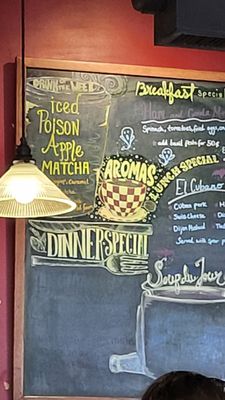 DRINK OF THE WEEK
iced
POISON
Apple
MATCHA
Breakfast Special
Spinach, tomatoes, fried eggs
+ add basil pesto for 50¢
AROMAS
LUNCH SPECIAL
El Cubano
Cuban pork
Swiss cheese
Dijon Mustard
Served with your
DINNER SPECIAL
Soup du Jour